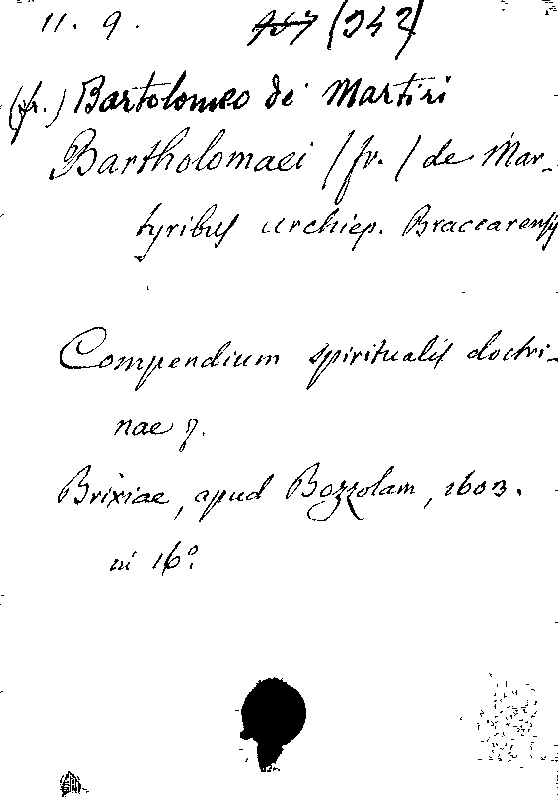 11. 9. 157 (342)
(fr.) Bartolomeo de' Martiri
Bartholomaei (fr.) de Mar-
tyribus archiep. Braccarensis
Compendium spiritualis doctri-
nae
Brixiae, apud Bozzolam, 1603.
in 16°.